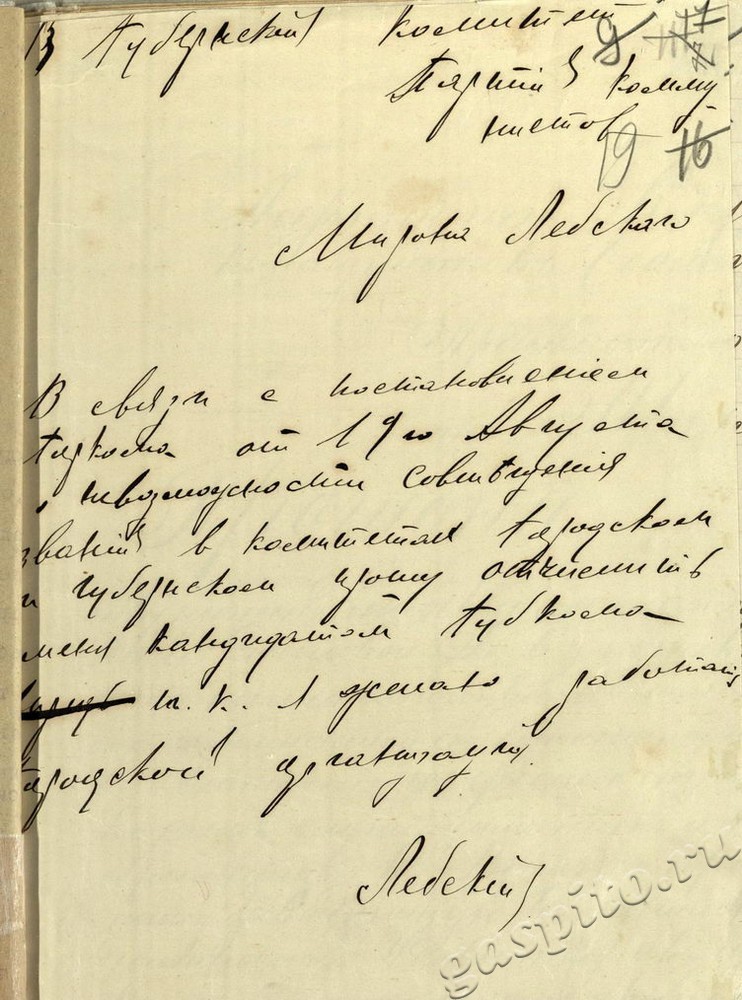 В Губернский комитет
Партии комму
нистов
9
19 16
Мирона Лебского
В связи с постановлением
Горкома от 19го Августа
о невозможности совмещения
званий в комитетах городском
и губернском прошу отчислить
меня кандидатом Губкома
т. к. я желаю работать
городской организации.
Лебский
gaspito.ru